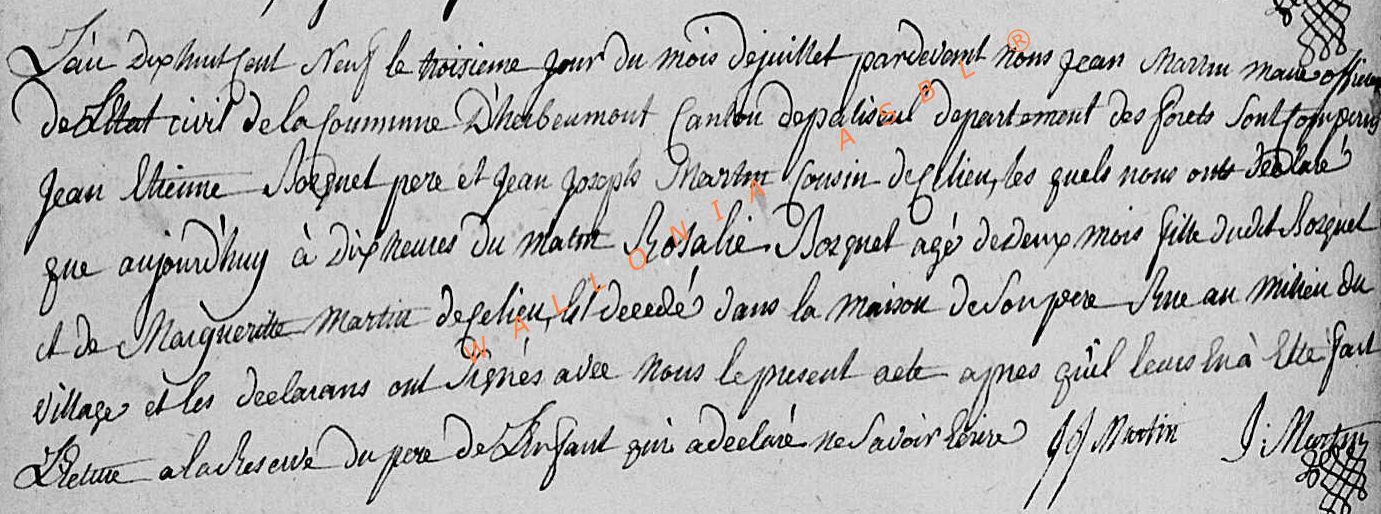 L'an Dix huit Cent Neuf le troisieme jour du mois de juillet pardevant nous Jean Martin maire officier
de L'Etat civil de la Commune D'herbeumont Canton de paliseul departement des forets Sont Comparus
Jean Etienne Bosquet pere et Jean Joseph Martin Cousin de Ce lieu, les quels nous ont declaré
que aujourd'huy à Dix heures du matin Rosalie Bosquet agé de deux mois fille dudit Bosquet
et de Margueritte Martin de Ce lieu, Est decedé dans la maison de Son pere Rue au milieu du
village et les declarans ont Signés avec Nous le present acte apres qu'il leurs En à Etté fait
Lecture a la Reserve du pere de L'Enfant qui a declaré ne Savoir Ecrire JJ Martin J: Martin
WALLONIA ASBL ®